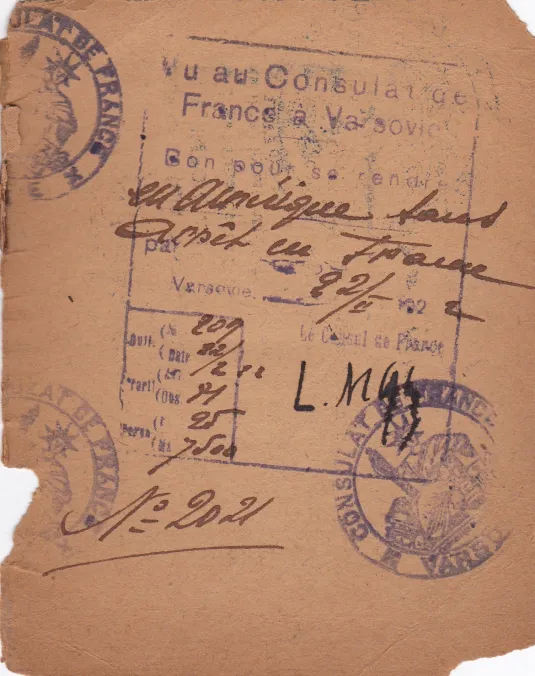 CONSULAT DE FRANCE
Vu au Consulat de
France à Varsovie
Bon pour se rendre
en Amérique sans
arrêt en France
par
Varsovie, 22/II 192 2
Le Consul de France
209
22/
2 22
71
25
7500
No 2021
CONSULAT DE FRANCE
CONSULAT DE FRANCE
VARSO